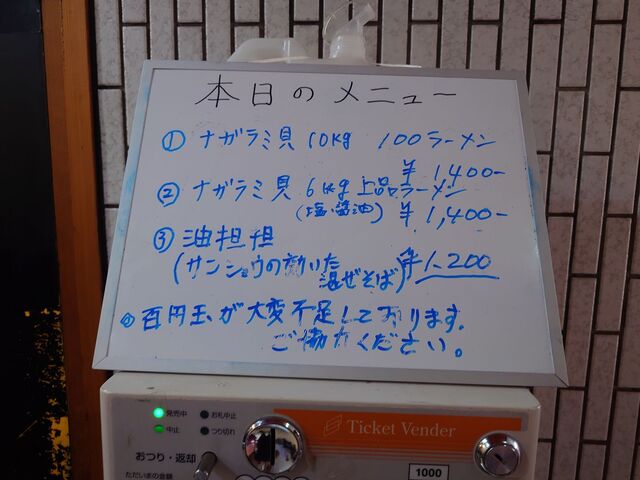 本日のメニュー
① ナガラミ貝 10kg 100ラーメン
¥1,400-
② ナガラミ貝 6kg 上品ラーメン
(塩・醤油) ¥1,400-
③ 油担担
(サンショウの効いた
混ぜそば) ¥1,200
百円玉が大変不足しております.
ご協力ください。
発売中
お札中止
中止
つり切れ
Ticket Vender
おつり・返却
ただいまの金額
1000